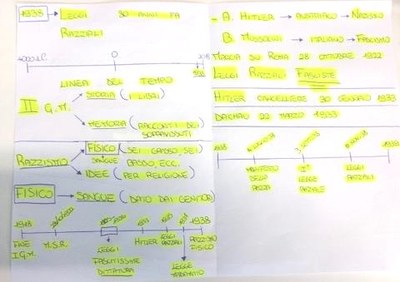 1938 → LEGGI 30 ANNI FA
RAZZIALI
4000 a.C. 0
LINEA DEL TEMPO
II G.M. → STORIA (I LIBRI)
→ MEMORIA (RACCONTI DEI
SOPRAVVISSUTI)
RAZZISMO → FISICO (SEI GROSSO, SEI
GROSSO, ECC.
→ IDEE (PER RELIGIONE)
FISICO → SANGUE (DATO DAI GENITORI)
1918 1938
FINE
I G.M. HITLER LEGGI
RAZZIALI RAZZISMO
FISICO
LEGGI
FASCISTISSIME
DITTATURA
LEGGE
- A. HITLER → AUSTRIACO → NAZISMO
- B. MUSSOLINI → ITALIANO → FASCISMO
MARCIA SU ROMA 28 OTTOBRE 1922
LEGGI RAZZIALI FASCISTE
HITLER CANCELLIERE 30 GENNAIO 1933
DACHAU 22 MARZO 1933
MANIFESTO
DELLA
RAZZA
1°
LEGGE
RAZZIALE
LEGGI
RAZZIALI